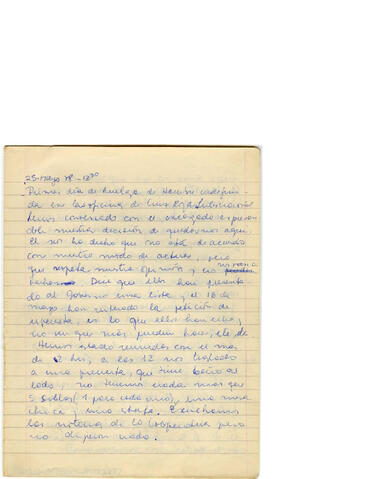 25-mayo 78 - 12³⁰
Primer día de huelga de Hambre indefini-
da en la oficina de Cruz Roja Internacional
hemos conversado con el encargado
nuestra decisión de quedarnos aquí.
El nos ha dicho que no está de acuerdo
con nuestro modo de actuar, pero
que respeta nuestra opinión y no nos va a
Dice que ellos han presenta-
do al Gobierno una lista y el 18 de
mayo han reiterado la petición de
respuesta, es lo que ellos han hecho,
no
Hemos estado reunidos con el mas
de 2 hrs, a las 12 nos trasladó
a una pieza, que tiene baño al
lado, no tenemos nada mas que
5 sillas (1 para cada uno), una mesa
chica y una estufa. Escuchamos
las noticias de la Cooperativa pero
no dijeron nada.